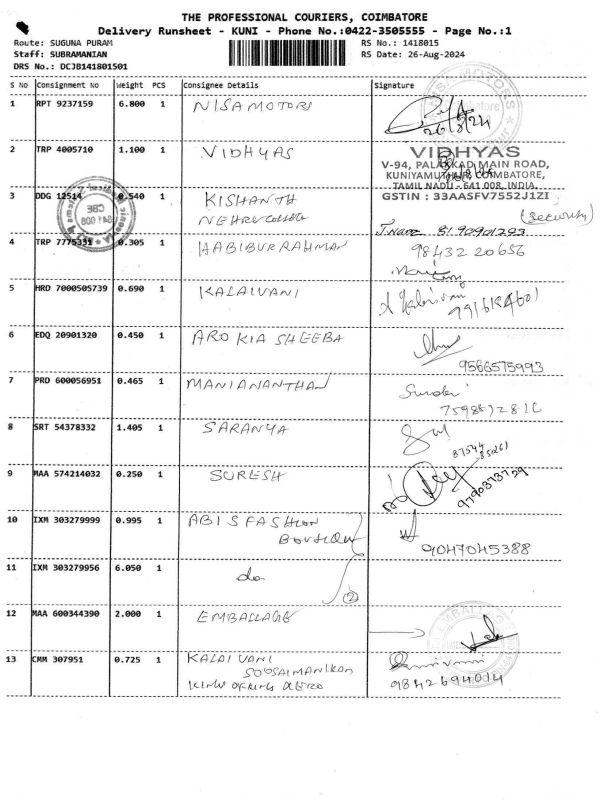 THE PROFESSIONAL COURIERS, COIMBATORE
Delivery Runsheet - KUNI - Phone No.:0422-3505555 - Page No.:1
Route: SUGUNA PURAM RS No.: 1418015
Staff: SUBRAMANIAN RS Date: 26-Aug-2024
DRS No.: DCJB141801501
S No Consignment No Weight PCS Consignee Details Signature
1 RPT 9237159 6.800 1 NISA MOTORS
26/8/24
2 TRP 4005710 1.100 1 VIDHYAS
VIDHYAS
V-94, PALAKKAD MAIN ROAD,
KUNIYAMUTHUR, COIMBATORE,
TAMIL NADU - 641 008, INDIA.
GSTIN : 33AASFV7552J1ZI
3 DDG 12514 0.540 1 KISHANTH
NEHRU COLLEGE
(Security)
4 TRP 7775331 0.305 1 HABIBURRAHMAN
98432 20656
5 HRD 7000505739 0.690 1 KALAIVANI
6 EDQ 20901320 0.450 1 AROKIA SHEEBA
9566575993
7 PRD 600056951 0.465 1 MANIANANTHAN
8 SRT 54378332 1.405 1 SARANYA
87544
85261
9 MAA 574214032 0.250 1 SURESH
9790373729
10 IXM 303279999 0.995 1 ABIS FASHION
BOUTIQUE
9047045388
11 IXM 303279956 6.050 1 do
2
12 MAA 600344390 2.000 1 EMBALLAGE
13 CMM 307951 0.725 1 KALAIVANI
9842694014